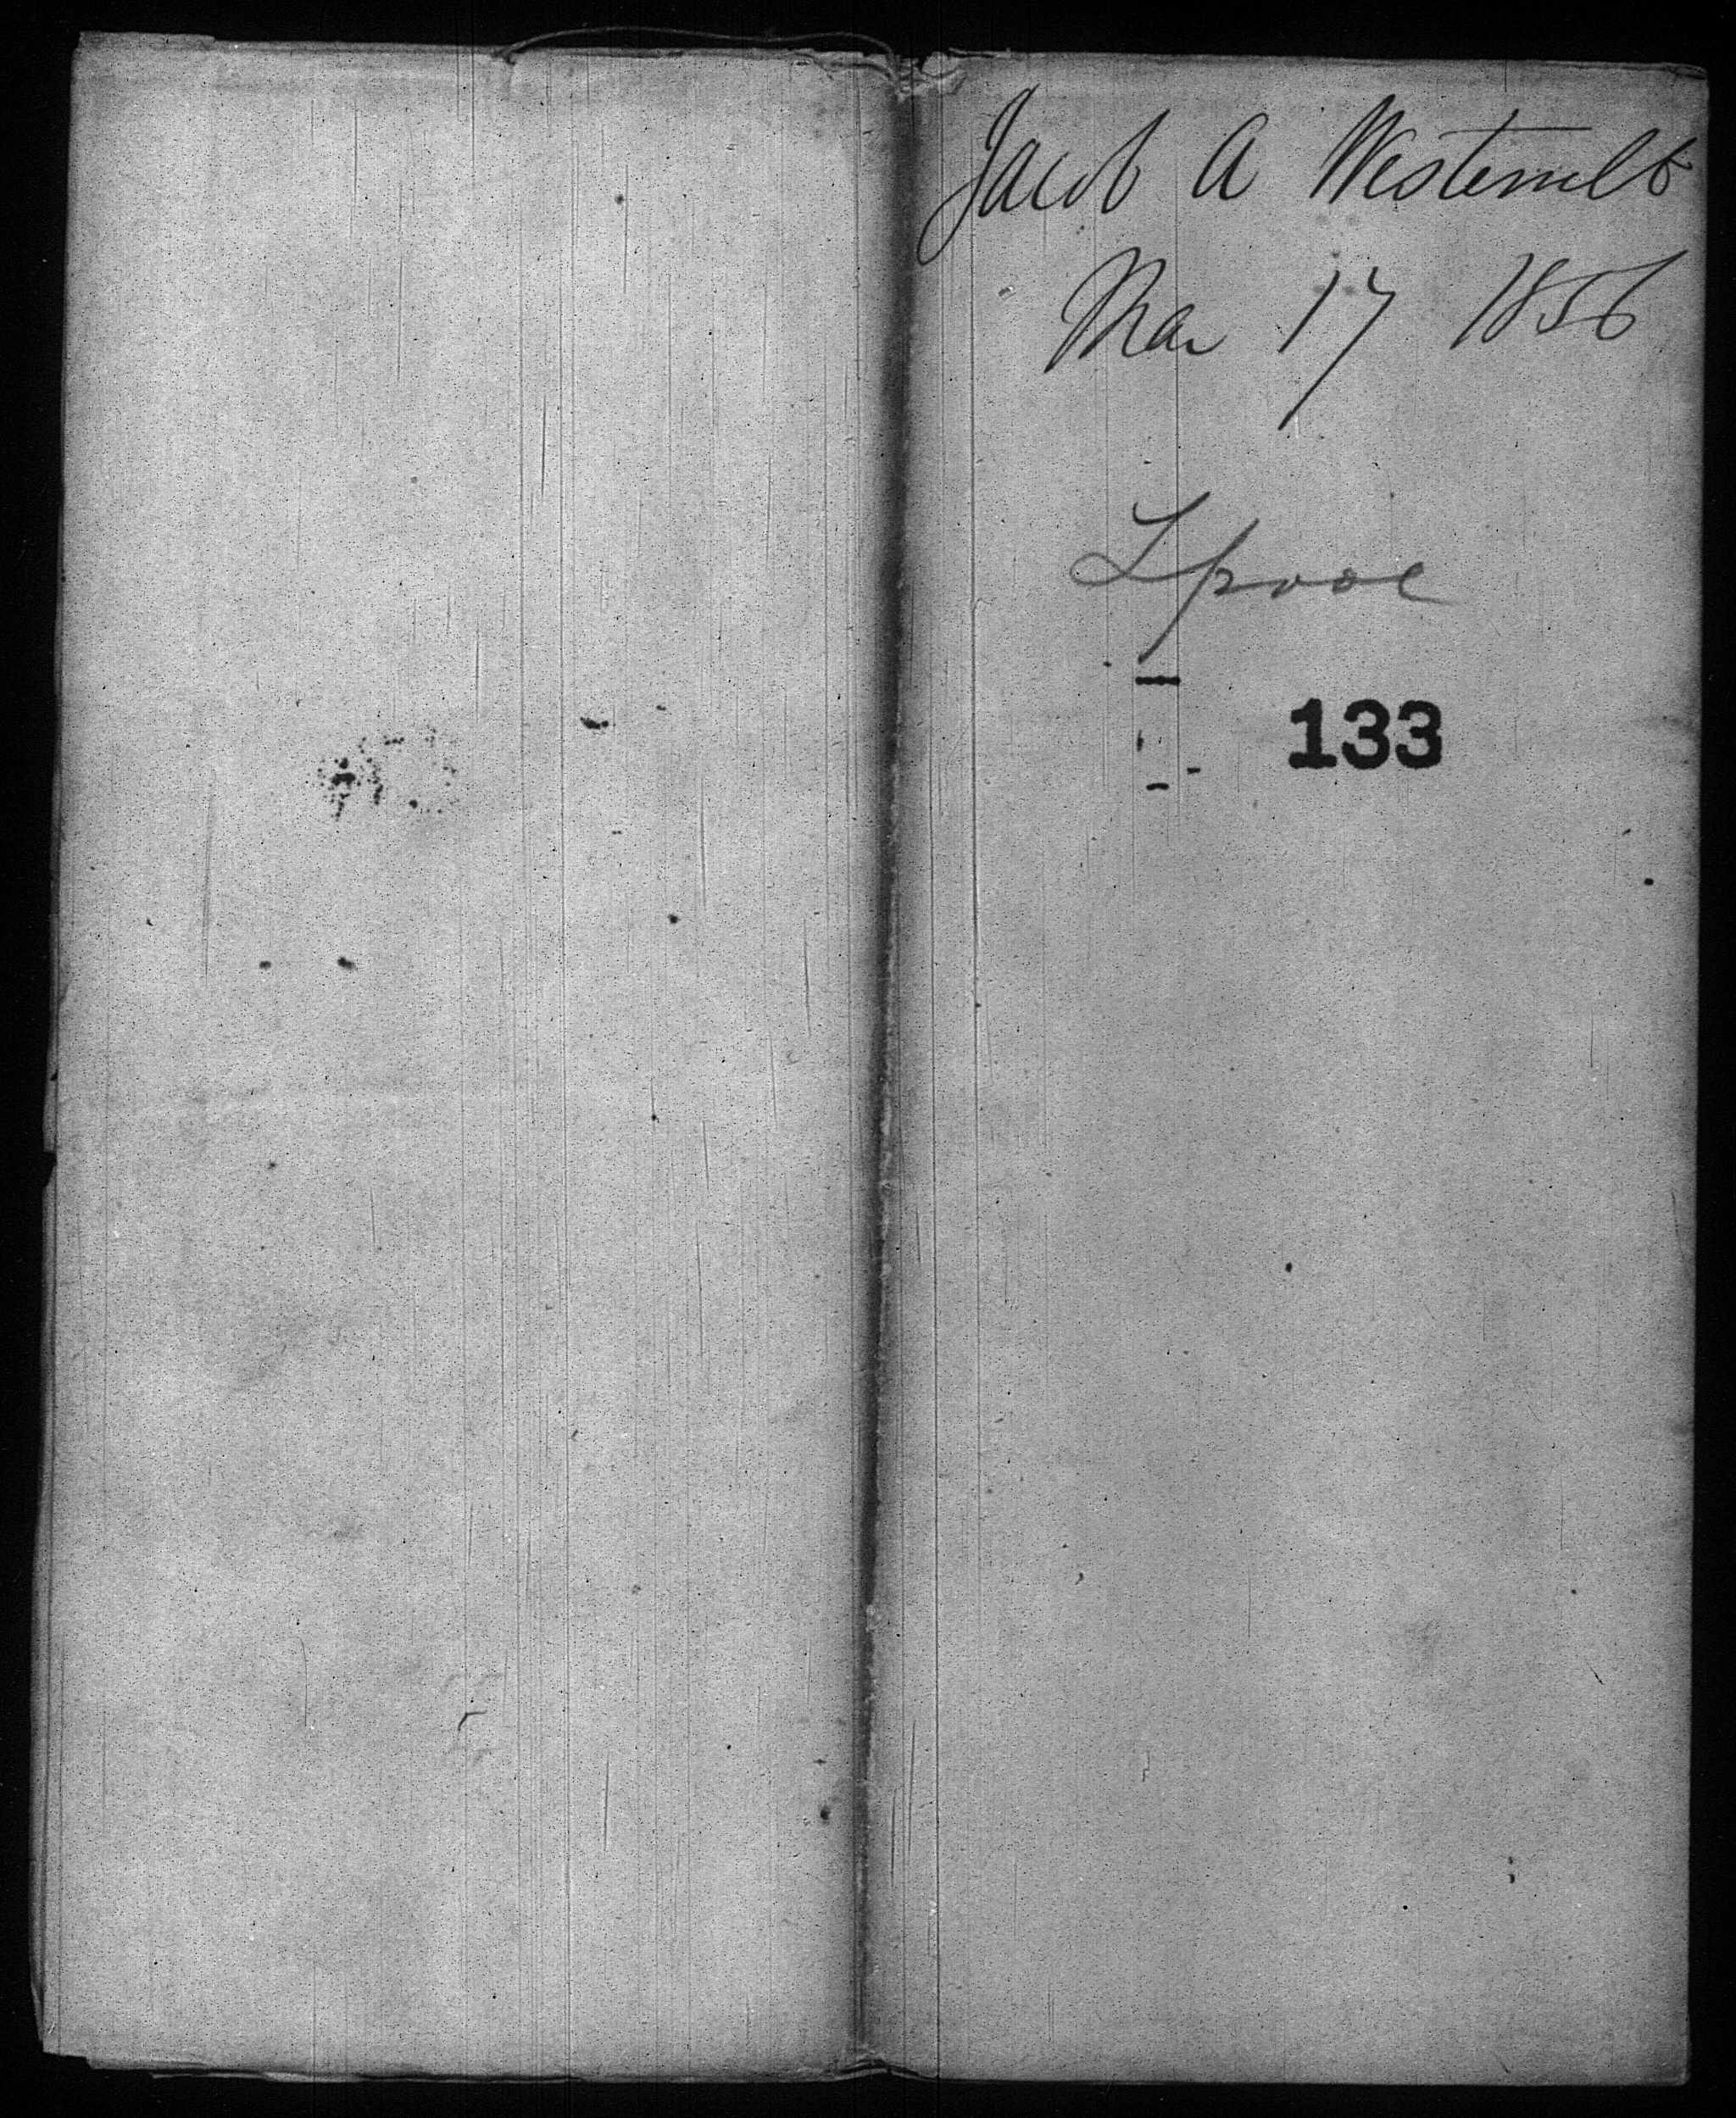 Jacob A Westervelt
Mar 17 1856
Lpool
133